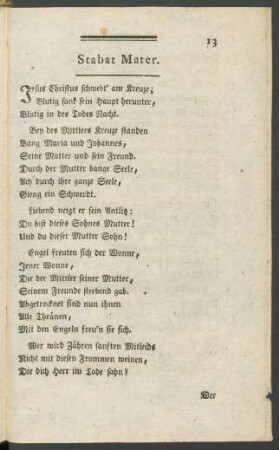 13
Stabat Mater.
Jesus Christus schwebt' am Kreuze;
Blutig sank sein Haupt herunter,
Blutig in des Todes Nacht.
Bey des Mittlers Kreuze standen
Bang Maria und Johannes,
Seine Mutter und sein Freund.
Durch der Mutter bange Seele,
Ach durch ihre ganze Seele,
Gieng ein Schwerdt.
Liebend neigt er sein Antlitz:
Du bist dieses Sohnes Mutter!
Und du dieser Mutter Sohn!
Engel freuten sich der Wonne,
Jener Wonne,
Die der Mittler seiner Mutter,
Seinem Freunde sterbend gab.
Abgetrocknet sind nun ihnen
Alle Thränen,
Mit den Engeln freu'n sie sich.
Wer wird Zähren sanften Mitleids
Nicht mit diesen Frommen weinen,
Die dich Herr im Tode sahn?
Wer